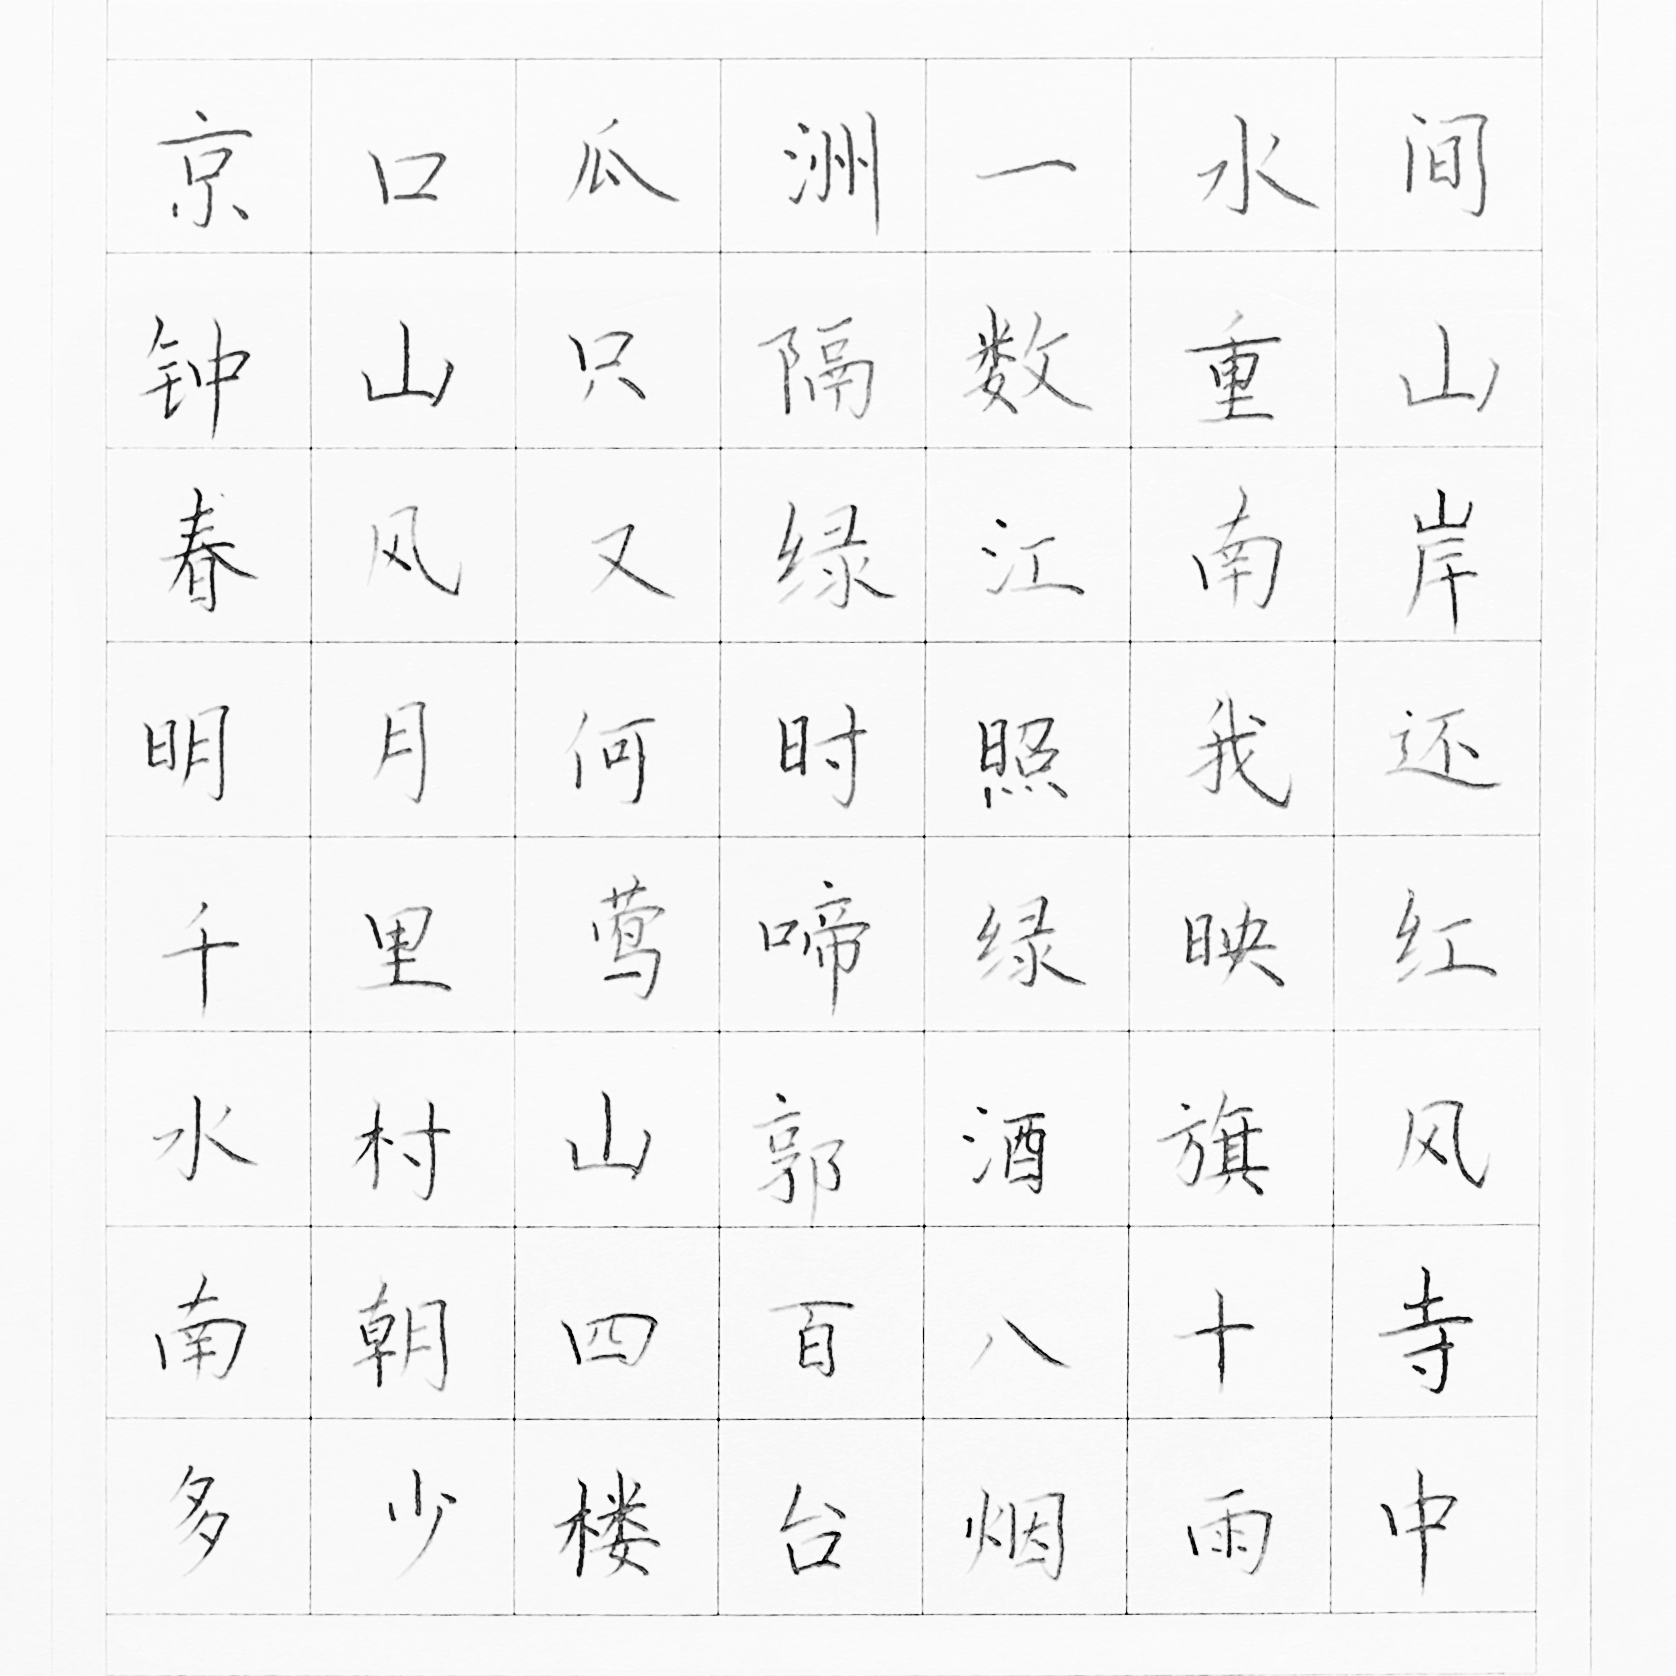 京口瓜洲一水间
钟山只隔数重山
春风又绿江南岸
明月何时照我还
千里莺啼绿映红
水村山郭酒旗风
南朝四百八十寺
多少楼台烟雨中